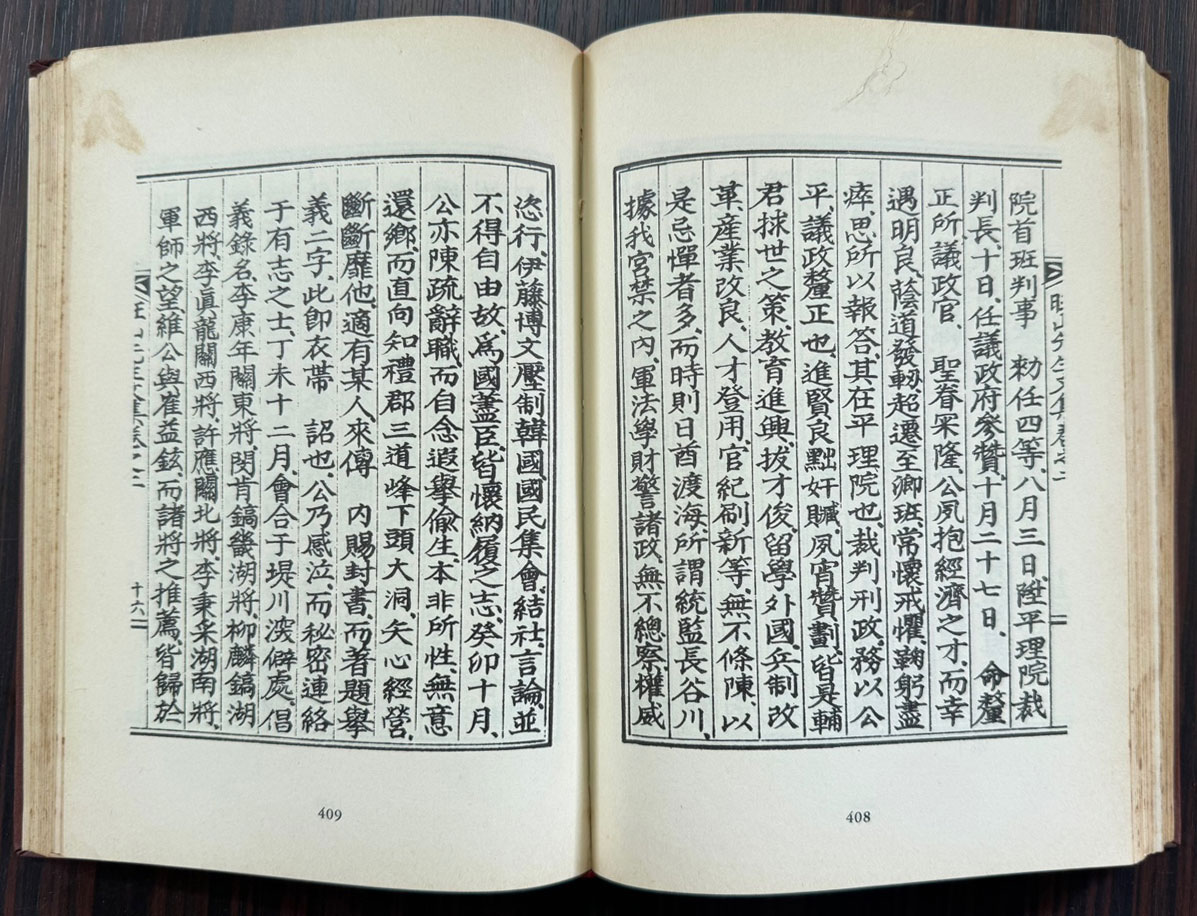 院首班判事 勅任四等、八月三日、陞平理院裁
判長、十日、任議政府參贊、十月二十七日、 命釐
正所議政官、 聖眷罙隆、公夙抱經濟之才、而幸
遇明良、蔭道發軔、起遷至卿班、常懷戒懼、鞠躬盡
瘁、思所以報答、其在平理院也、裁判刑政、務以公
平、議政釐正也、進賢良、黜奸贓、夙宵贊劃、皆是輔
君捄世之策、教育進興、拔才俊、留學外國、兵制改
革、産業改良、人才登用、官紀刷新等、無不條陳、以
是忌憚者多、而時則日酋渡海、所謂統監長谷川、
據我宮禁之內、軍法學財警諸政、無不總察、權威
恣行、伊藤博文壓制韓國、國民集會、結社、言論、並
不得自由、故爲國藎臣、皆懷納履之志、癸卯十月、
公亦陳疏辭職、而自念遐擧偸生、本非所性、無意
還鄉、而直向知禮郡三道峰下頭大洞、矢心經營、
斷斷靡他、適有某人、來傳 內賜封書、而著題擧
義二字、此卽衣帶 詔也、公乃感泣、而秘密連絡
于有志之士、丁未十二月、會合于堤川深僻處、倡
義錄名、李康年關東將、閔肯鎬畿湖將、柳麟鎬湖
西將、李眞龍關西將、許應關北將、李秉采湖南將、
軍師之望、維公與崔益鉉、而諸將之推薦、皆歸於
十六
409
408